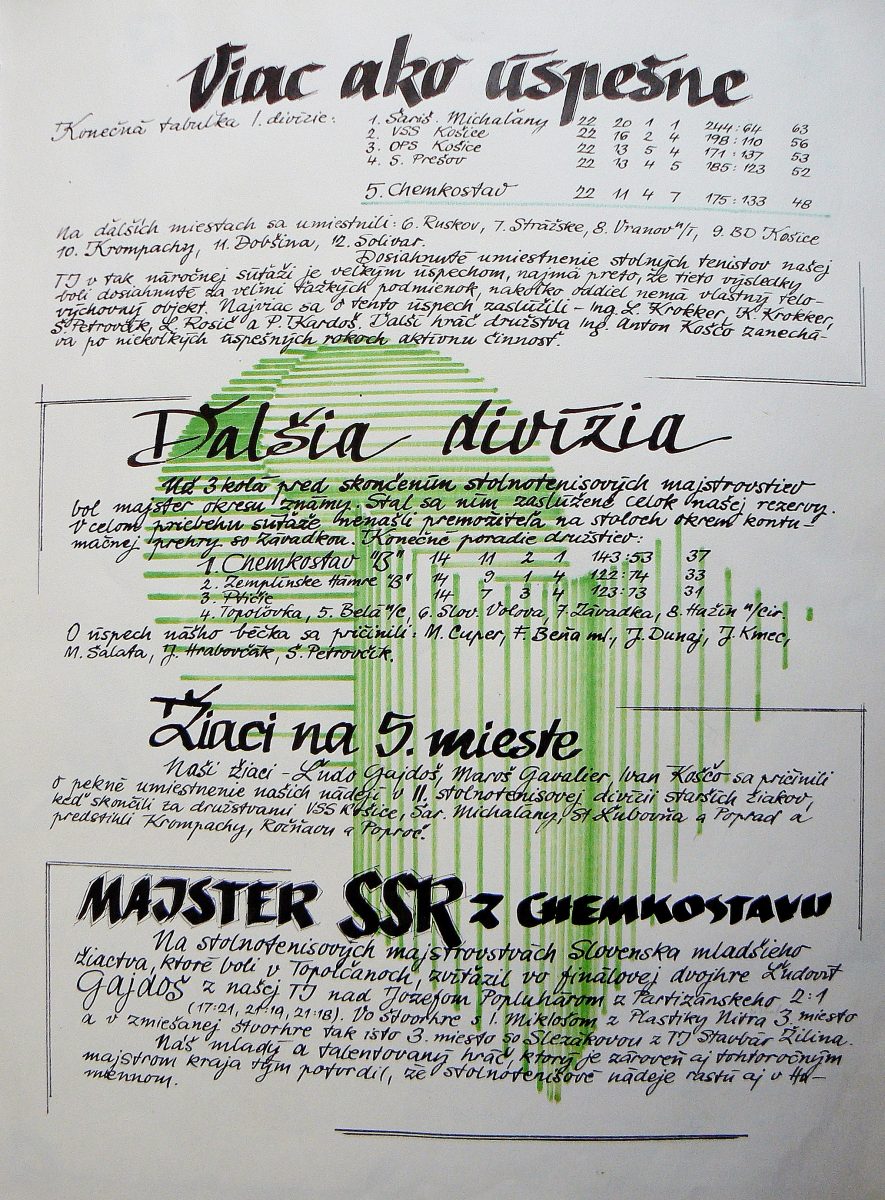 Viac ako úspešne
Konečná tabuľka I. divízie: 1. Šariš. Michaľany 22 20 1 1 244:64 63
2. VSS Košice 22 16 2 4 198:110 56
3. OPS Košice 22 13 5 4 171:137 53
4. S. Prešov 22 13 4 5 185:123 52
5. Chemkostav 22 11 4 7 175:133 48
Na ďalších miestach sa umiestnili: 6. Ruskov, 7. Strážske, 8. Vranov n/T, 9. BD Košice
10. Krompachy, 11. Dobšina, 12. Solivar.
Dosiahnuté umiestnenie stolných tenistov našej
TJ v tak náročnej súťaži je veľkým úspechom, najmä preto, že tieto výsledky
boli dosiahnuté za veľmi ťažkých podmienok, nakoľko oddiel nemá vlastný telo-
výchovný objekt. Najviac sa o tento úspech zaslúžili - Ing. L. Krokker, K. Krokker,
Š. Petrovčik, L. Rosič a P. Kardoš. Ďalší hráč družstva Ing. Anton Koščo zanechá-
va po niekoľkých úspešných rokoch aktívnu činnosť.
Ďalšia divízia
Už 3 kolá pred skončením stolnotenisových majstrovstiev
bol majster okresu známy. Stal sa ním zaslúžene celok našej rezervy.
V celom priebehu súťaže nenašli premožiteľa na stoloch okrem kontu-
mačnej prehry so Závadkou. Konečné poradie družstiev:
1. Chemkostav "B" 14 11 2 1 143:53 37
2. Zemplínske Hámre "B" 14 9 1 4 122:74 33
3. Ptičie 14 7 3 4 123:73 31
4. Topoľovka, 5. Belá n/C, 6. Slov. Volová, 7. Závadka, 8. Hažín n/Cir.
O úspech nášho béčka sa pričinili: M. Cuper, F. Beňa ml., J. Dunaj, J. Kmec,
M. Šalata, J. Hrabovčák, Š. Petrovčik.
Žiaci na 5. mieste
Naši žiaci - Ľudo Gajdoš, Maroš Gavalier, Ivan Koščo sa pričinili
o pekné umiestnenie našich nádejí v II. stolnotenisovej divízii starších žiakov,
keď skončili za družstvami VSS Košice, Šar. Michaľany, St. Ľubovňa a Poprad a
predstihli Krompachy, Rožňavu a Poproč.
MAJSTER SSR Z CHEMKOSTAVU
Na stolnotenisových majstrovstvách Slovenska mladšieho
žiactva, ktoré boli v Topoľčanoch, zvíťazil vo finálovej dvojhre Ľudovít
Gajdoš z našej TJ nad Jozefom Popluhárom z Partizánskeho 2:1
(17:21, 21:19, 21:18). Vo štvorhre s I. Miklošom z Plastiky Nitra 3. miesto
a v zmiešanej štvorhre tak isto 3. miesto so Slezákovou z TJ Stavbár Žilina.
Náš mladý a talentovaný hráč, ktorý je zároveň aj tohtoročným
majstrom kraja tým potvrdil, že stolnotenisové nádeje rastú aj v Hu-
mennom.